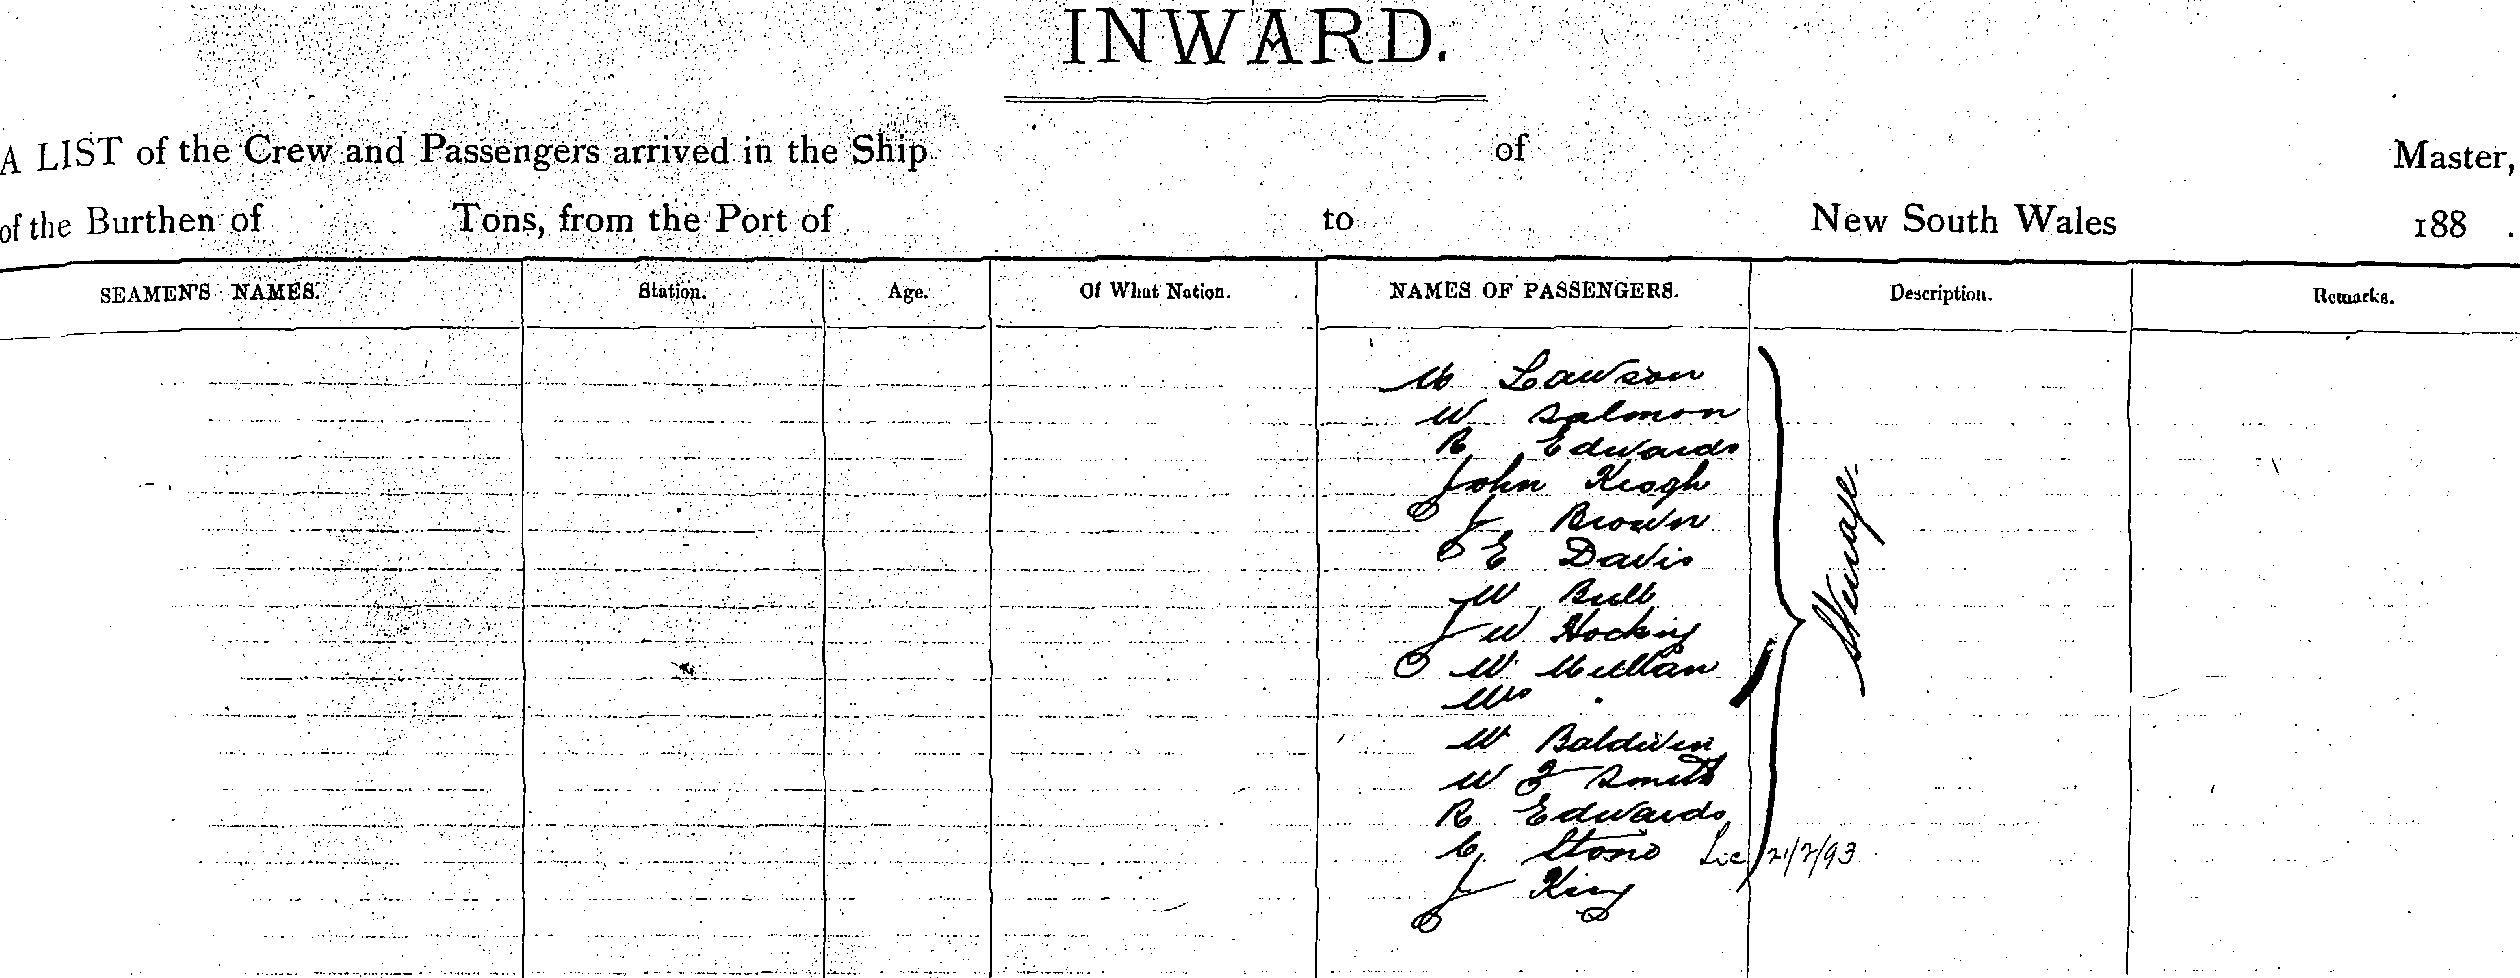 INWARD.
A LIST of the Crew and Passengers arrived in the Ship of Master,
of the Burthen of Tons, from the Port of to New South Wales 188 .
SEAMEN'S NAMES. Station. Age. Of What Nation. NAMES OF PASSENGERS. Description. Remarks.
Lawson
W Salmon
R Edwards
John Keogh
J Brown
E Davis
W Bull
J W Hocking
W
W Baldwin
W F Smith
R Edwards
C. Stone 21/2/93
J King
Steerage.